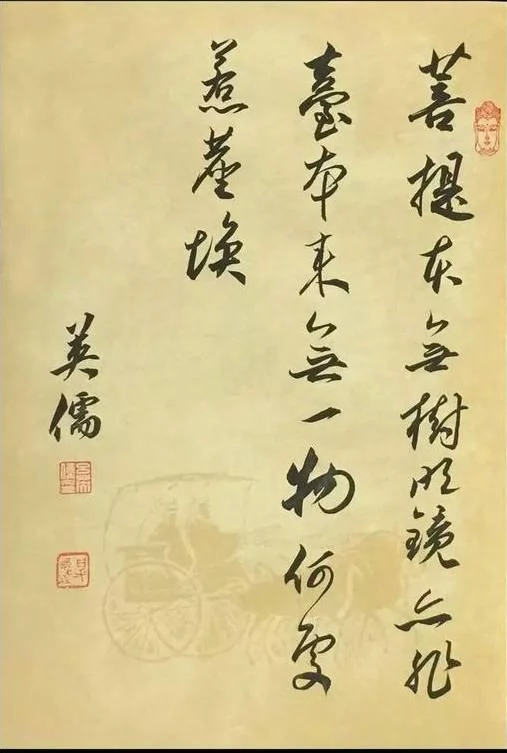 菩提本無樹明鏡亦非
臺本来無一物何處
惹塵埃
英儒